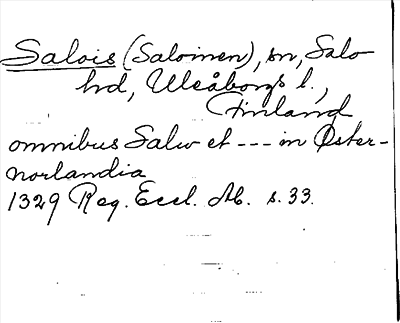 Salois (Saloinen), sn, Salo
hd, Uleåborgs l.,
Finland
omnibus Salw et --- in Øster-
norlandia
1329 Reg. Eccl. Ab. s. 33.